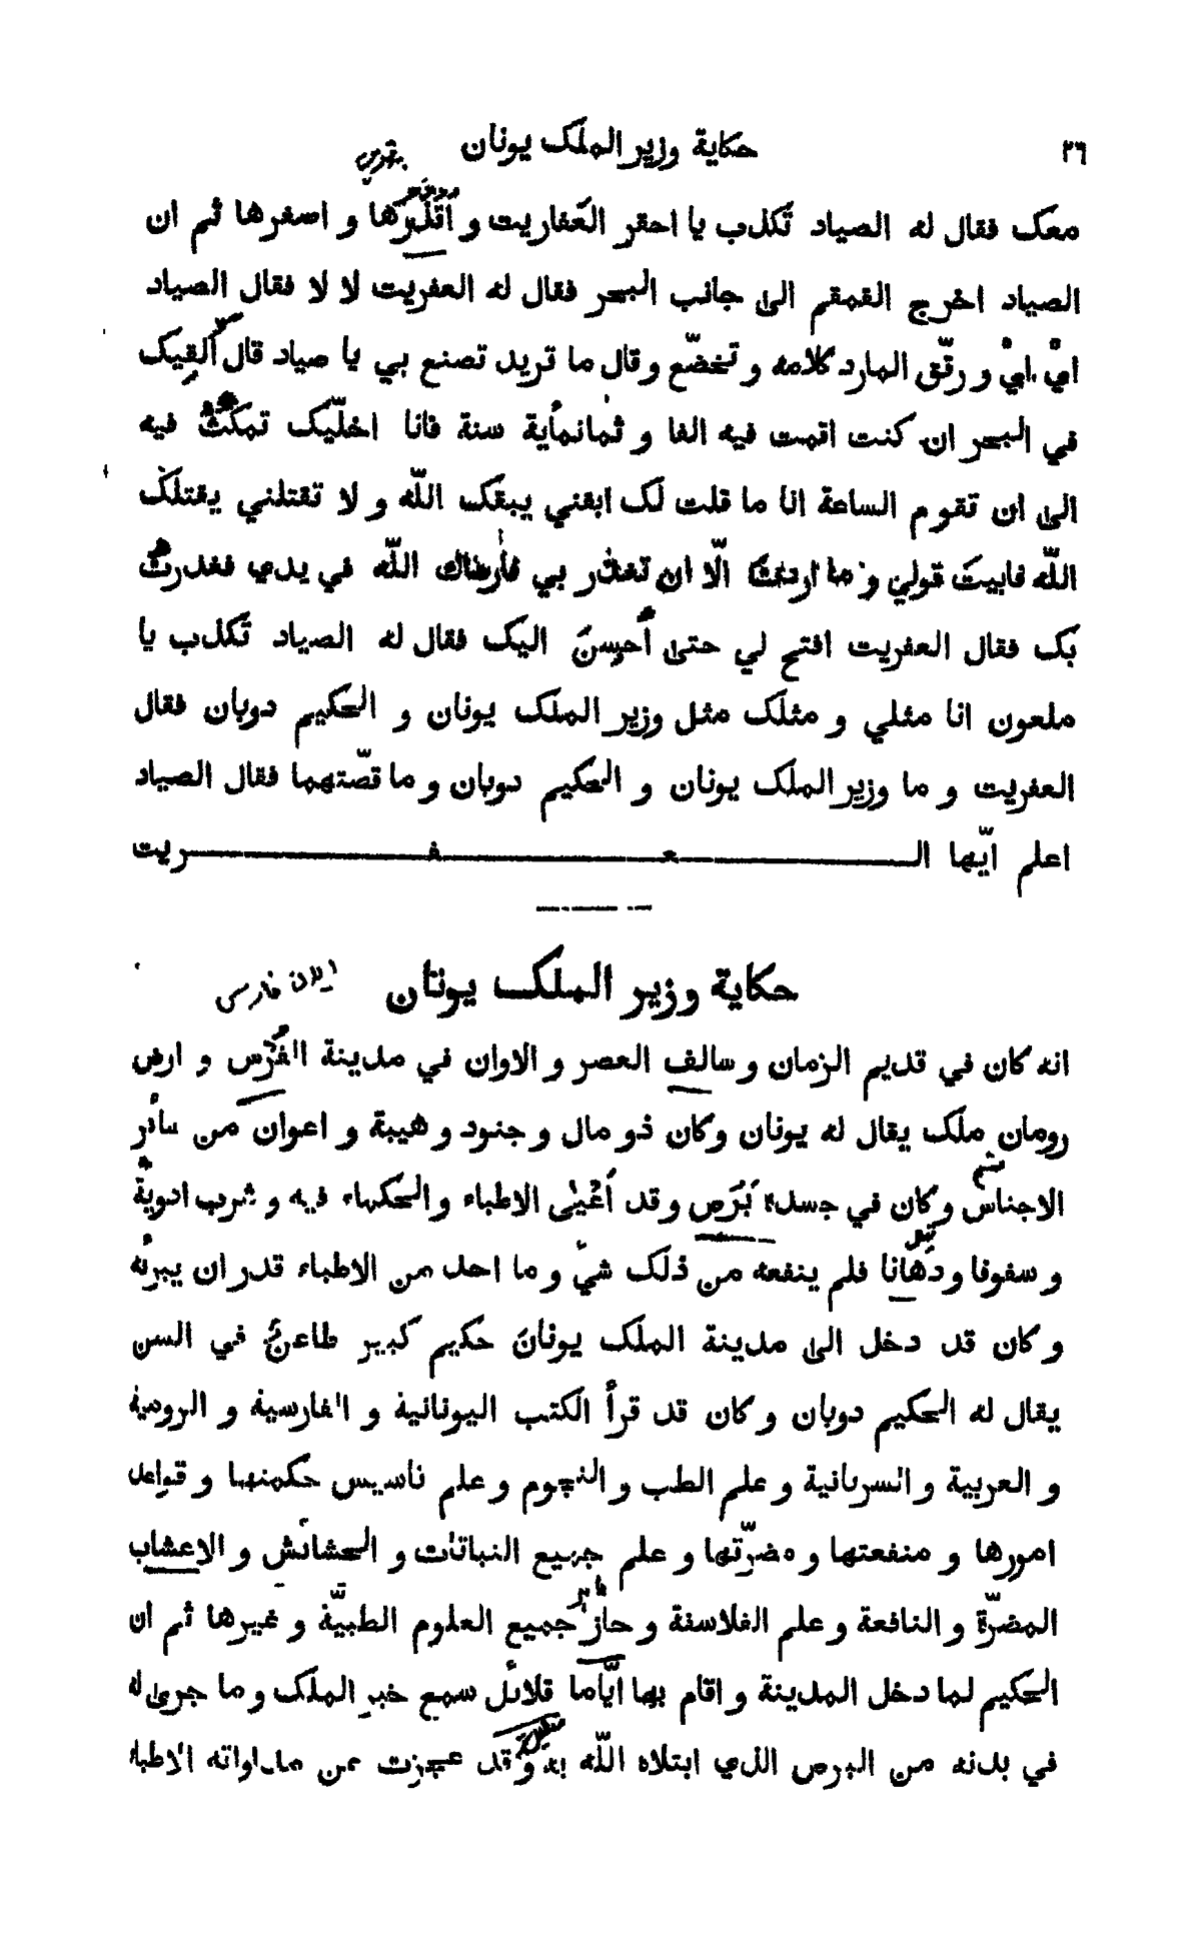 ٣٦ حكاية وزير الملك يونان
معك فقال له الصياد تَكذب يا احقر العَفاريت و أقذرها و اصغرها ثم ان
الصياد اخرج القمقم الى جانب البحر فقال له العفريت لا لا فقال الصياد
ايْ ايْ و رقّق المارد كلامه و تخضّع وقال ما تريد تصنع بي يا صياد قال أُلقيك
في البحر ان كنت اقمت فيه الفا و ثمانمأية سنة فانا اخلّيك تمكث فيه
الى ان تقوم الساعة انا ما قلت لك ابقني يبقك اللّه و لا تقتلني يقتلك
اللّه فابيت قولي و ما اردت الّا ان تغدر بي فأرماك اللّه في يدي فغدرت
بك فقال العفريت افتح لي حتى أُحسنَ اليك فقال له الصياد تَكذب يا
ملعون انا مثلي و مثلك مثل وزير الملك يونان و الحكيم دوبان فقال
العفريت و ما وزير الملك يونان و الحكيم دوبان و ما قصّتهما فقال الصياد
اعلم ايّها العفريت
حكاية وزير الملك يونان ايلان فارسى
انه كان في قديم الزمان و سالف العصر و الاوان في مدينة الفُرْس و ارض
رومان ملك يقال له يونان وكان ذو مال و جنود و هيبة و اعوان من سائر
الاجناس وكان في جسده بَرَص وقد أعْيىٰ الاطباء والحكماء فيه و شرب ادويةً
و سفوفا و دهانا فلم ينفعه من ذلك شيْ و ما احد من الاطباء قدر ان يبرئه
و كان قد دخل الى مدينة الملك يونانَ حكيم كبير طاعنٌ في السن
يقال له الحكيم دوبان وكان قد قرأ الكتب اليونانية و الفارسية و الرومية
و العربية و السريانية و علم الطب و النجوم و علم تاسيس حكمتها و قواعد
امورها و منفعتها و مضرّتها و علم جميع النباتات و الحشائش و الاعشاب
المضرّة و النافعة و علم الفلاسفة و حاز جميع العلوم الطبيّة و غيرها ثم ان
الحكيم لما دخل المدينة و اقام بها ايّاما قلائل سمع خبر الملك و ما جرى له
في بدنه من البرص الذي ابتلاه اللّه به وقد عجزت عن مداواته الاطباء